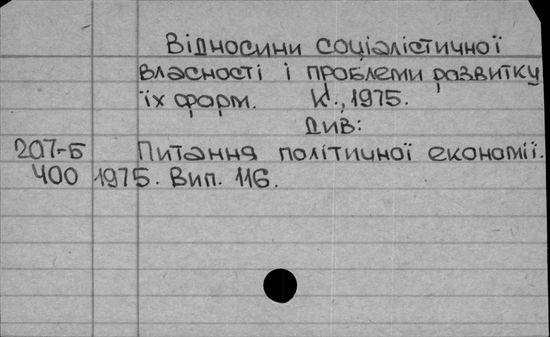 Відносини соціалістичної
власності і проблеми розвитку
їх форм. К., 1975.
Див:
207-Б Питання політичної економії.
400 1975. Вип. 116.